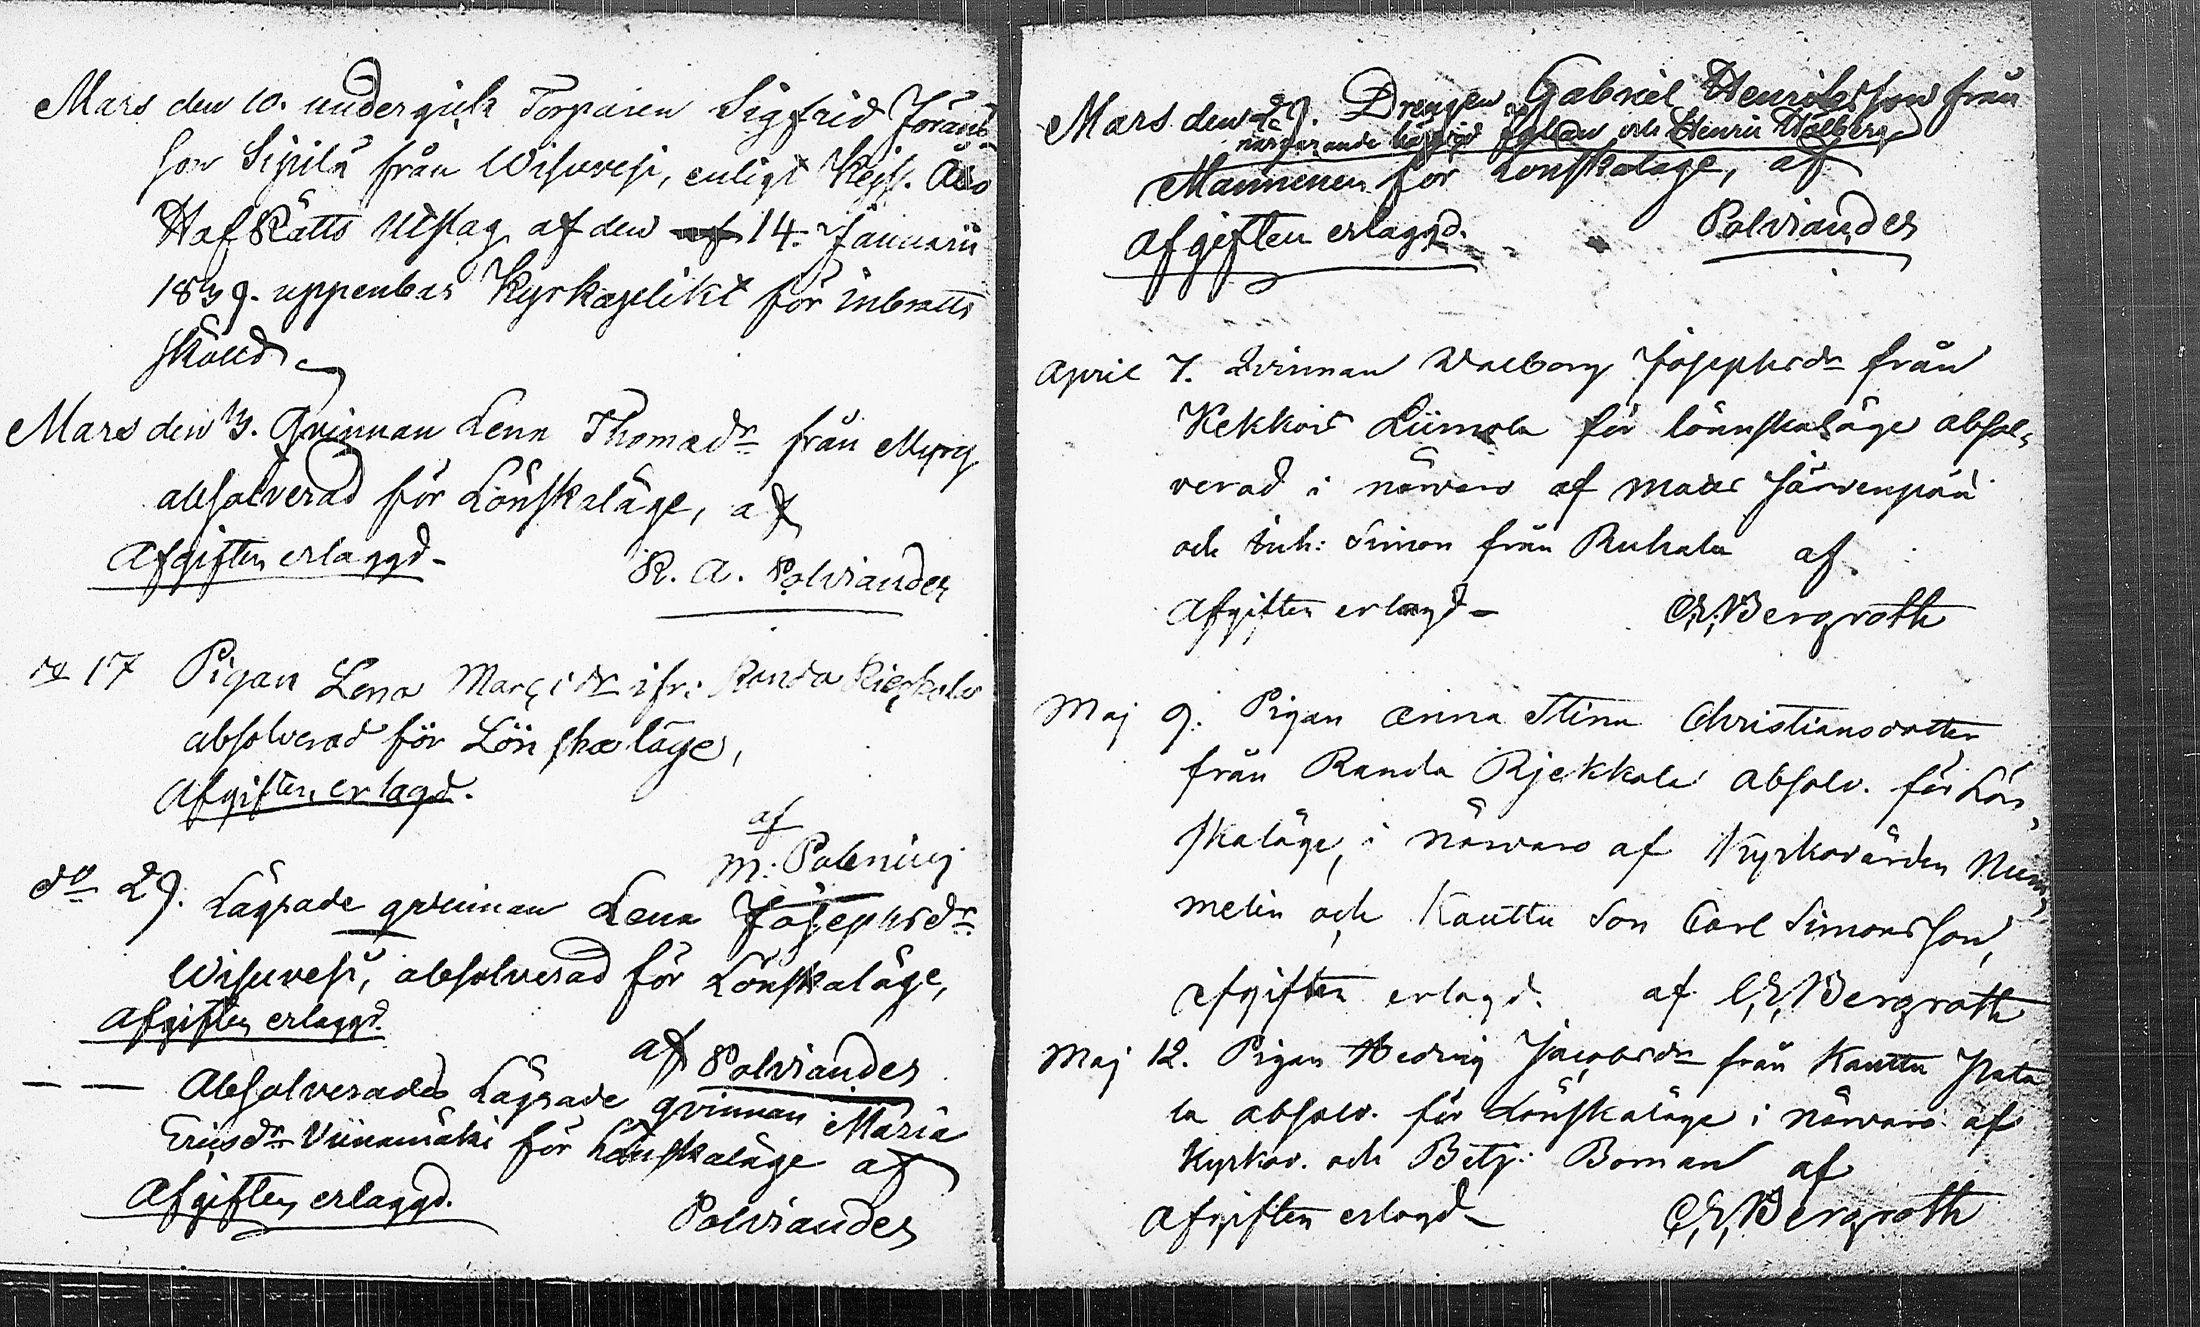 Mars den 10. undergick Torparen Sigfrid Jörans
son Sipilä från Wisuvesi, enligt Kejs. Åbo
HofRätts Utslag af den af 14. Januarii
1839. uppenbar Kyrkoplikt för inbrotts
stöld.
Mars den 13. Qvinnan Lena Thomædr från Myry
absolverad för Lönskaläge, af
Afgiften erlaggd.
R. A. Polviander
do 17 Pigan Lena Marcidr ifr: Randa Riekkola
absolverad för Lönskaläge,
Afgiften erlagd.
af
M: Polenius
do 29. Lägrade qvinnan Lena Josephsdr
Wisuvesi, absolverad för Lönskaläge,
Afgiften erlaggd.
af Polviander
— — Absolverades Lägrade qvinnan Maria
Ericsdr Viinamäki för Lönskaläge af
Afgiften erlaggd.
Polviander
Mars den 29. Drengen Gabriel Henricsson från
närvarande och Henric Walberg
Manninen för Lönskaläge, af
Afgiften erlaggd.
Polviander
April 7. Qvinnan Walborg Josephsdr från
Kekkois Liimola för lönnskaläge absol-
verad i närvaro af Matts Järvenpää
och Inh: Simon från Ruhala af
Afgiften erlagd
C,E,Bergroth
Maj 9. Pigan Anna Stina Christiansdotter
från Randa Rjekkola absolv. för Lön-
skaläge, i närvaro af Kyrkovärden Num-
melin och Kauttu Son Carl Simonsson,
Afgiften erlagd. af C,E,Bergroth
Maj 12. Pigan Hedvig Jacobsdr från Kauttu Ylata
la absolv. för Lönskaläge i närvaro af
Kyrkov. och Betj: Boman af
Afgiften erlagd
C,E,Bergroth